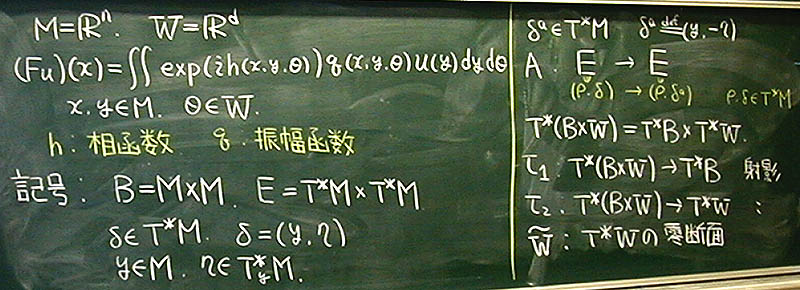 M=ℝⁿ. W=ℝᵈ
(Fu)(x)=∬exp(ih(x,y,θ))q(x,y,θ)u(y)dydθ
x,y∈M. θ∈W.
h:相函数 q:振幅函数
記号: B=M×M. E=T*M×T*M
δ∈T*M. δ=(y,η)
y∈M. η∈T*_yM.
δᵃ∈T*M δᵃ≝(y,-η)
A: E → E
(ρ,δ) → (ρ,δᵃ) ρ,δ∈T*M
T*(B×W)=T*B×T*W.
τ₁: T*(B×W)→T*B 射影
τ₂: T*(B×W)→T*W :
W̃: T*Wの零断面